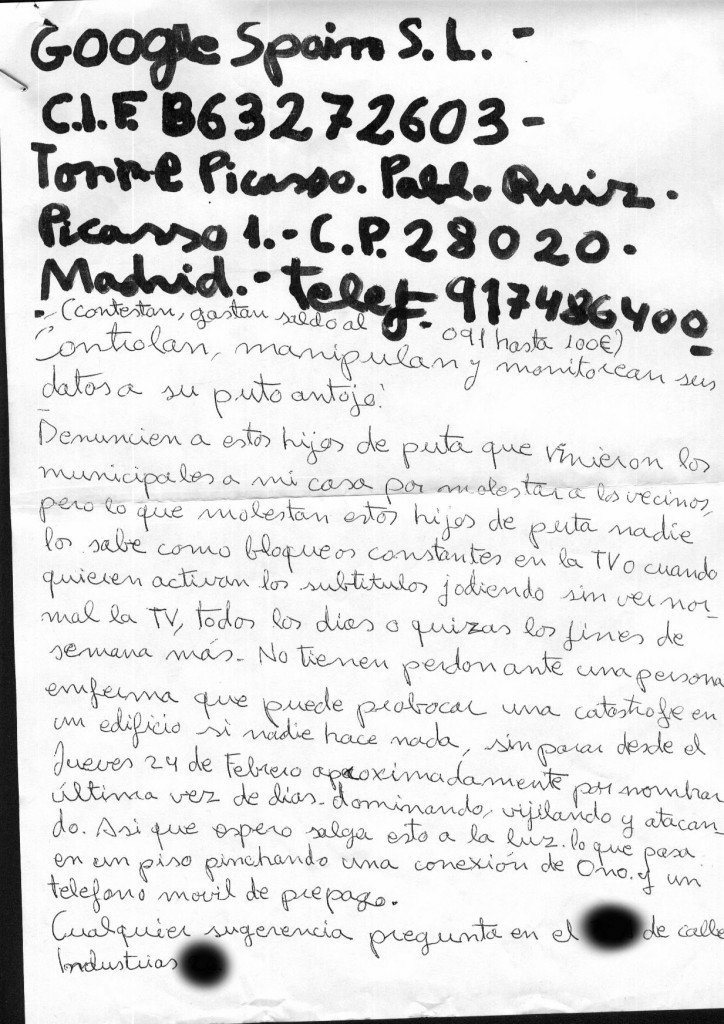 Google Spain S.L.-
C.I.F. B63272603-
Torre Picasso. Pablo Ruiz.
Picasso 1.- C.P. 28020.
Madrid.- telef. 917486400
.- (contestan, gastan saldo al 091 hasta 100€)
Controlan, manipulan y monitorean sus
datos a su puto antojo!
Denuncien a estos hijos de puta que vinieron los
municipales a mi casa por molestar a los vecinos,
pero lo que molestan estos hijos de puta nadie
los sabe como bloqueos constantes en la TV o cuando
quieren activan los subtitulos jodiendo sin ver nor-
mal la TV, todos los dias o quizas los fines de
semana más.- No tienen perdon ante una persona
enferma que puede probocar una catastrofe en
un edificio si nadie hace nada, sin parar desde el
Jueves 24 de Febrero aproximadamente por nombrar
última vez de dias- dominando, vijilando y atacan-
do. Asi que espero salga esto a la luz. lo que pasa
en un piso pinchando una conexión de Ono. y un
telefono movil de prepago.
Cualquier sugerencia pregunta en el de calle
Industrias